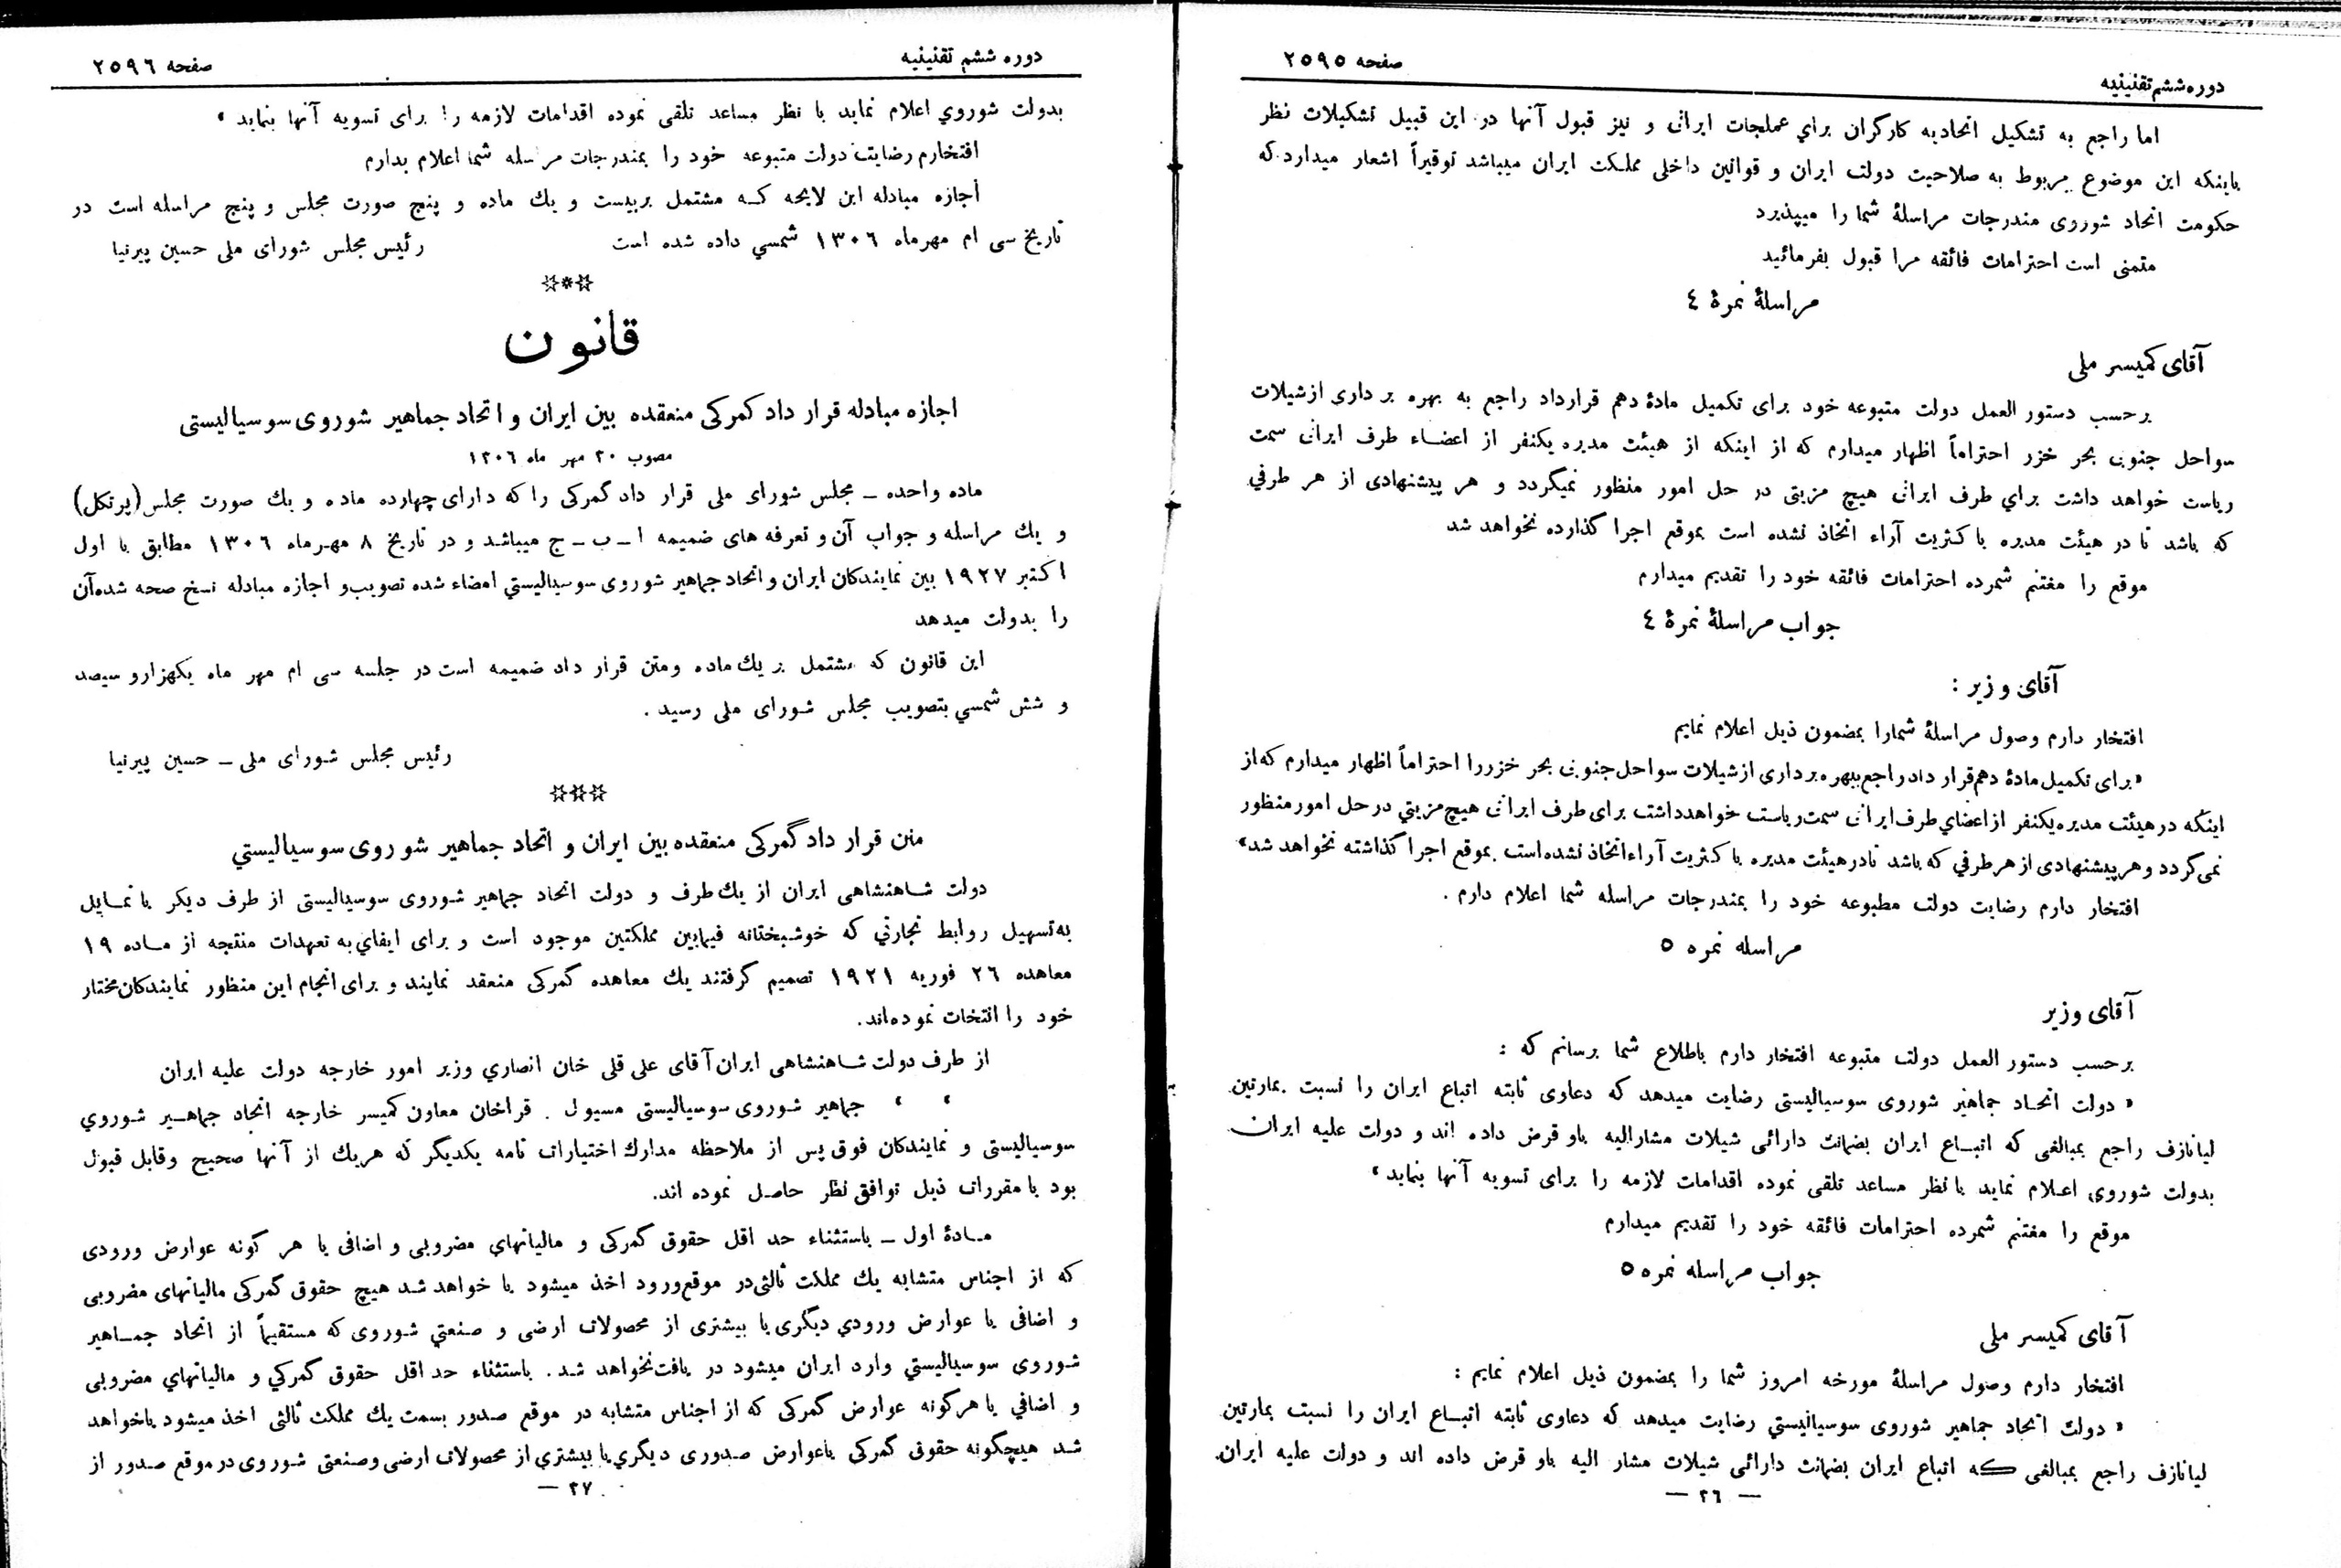 صفحه ۲۵۹۵
دوره ششم تقنینیه
اما راجع به تشکیل اتحادیه کارگران براي عملجات ایرانی و نیز قبول آنها در این قبیل تشکیلات نظر
باینکه این موضوع مربوط به صلاحیت دولت ایران و قوانین داخلی مملکت ایران میباشد توقیراً اشعار میدارد که
حکومت اتحاد شوروی مندرجات مراسلهٔ شما را میپذیرد
متمنی است احترامات فائقه مرا قبول بفرمائید
مراسلهٔ نمرهٔ ٤
آقای کمیسر ملی
برحسب دستور العمل دولت متبوعه خود برای تکمیل مادهٔ دهم قرارداد راجع به بهره برداری از شیلات
سواحل جنوبی بحر خزر احتراماً اظهار میدارم که از اینکه از هیئت مدیره یکنفر از اعضاء طرف ایرانی سمت
ریاست خواهد داشت براي طرف ایرانی هیچ مزیتی در حل امور منظور نمیگردد و هر پیشنهادی از هر طرفي
که باشد تا در هیئت مدیره با کثریت آراء اتخاذ نشده است بموقع اجرا گذارده نخواهد شد
موقع را مغتنم شمرده احترامات فائقه خود را تقدیم میدارم
جواب مراسلهٔ نمرهٔ ٤
آقای وزیر :
افتخار دارم وصول مراسلهٔ شمارا بمضمون ذیل اعلام نمایم
«برای تکمیل مادهٔ دهم قرار داد راجع ببهره برداری از شیلات سواحل جنوبی بحر خزررا احتراماً اظهار میدارم که از
اینکه در هیئت مدیره یکنفر از اعضاي طرف ایرانی سمت ریاست خواهد داشت برای طرف ایرانی هیچ مزیتي در حل امور منظور
نمی گردد و هر پیشنهادی از هر طرفي که باشد تا در هیئت مدیره با کثریت آراء اتخاذ نشده است بموقع اجرا گذاشته نخواهد شد»
افتخار دارم رضایت دولت مطبوعه خود را بمندرجات مراسله شما اعلام دارم .
مراسله نمره ٥
آقای وزیر
برحسب دستور العمل دولت متبوعه افتخار دارم باطلاع شما برسانم که :
« دولت اتحاد جماهیر شوروی سوسیالیستی رضایت میدهد که دعاوی ثابته اتباع ایران را نسبت بمارتین
لیانازف راجع بمبالغی که اتباع ایران بضمانت دارائی شیلات مشارالیه باو قرض داده اند و دولت علیه ایران
بدولت شوروی اعلام نماید با نظر مساعد تلقی نموده اقدامات لازمه را برای تسویه آنها بنماید»
موقع را مغتنم شمرده احترامات فائقه خود را تقدیم میدارم
جواب مراسله نمره ٥
آقای کمیسر ملی
افتخار دارم وصول مراسلهٔ مورخه امروز شما را بمضمون ذیل اعلام نمایم :
« دولت اتحاد جماهیر شوروی سوسیالیستي رضایت میدهد که دعاوی ثابته اتباع ایران را نسبت بمارتین
لیانازف راجع بمبالغی که اتباع ایران بضمانت دارائی شیلات مشار الیه باو قرض داده اند و دولت علیه ایران
— ۲٦ —
دوره ششم تقنینیه
صفحه ۲۵۹٦
بدولت شوروي اعلام نماید با نظر مساعد تلقی نموده اقدامات لازمه را برای تسویه آنها بنماید »
افتخارم رضایت دولت متبوعه خود را بمندرجات مراسله شما اعلام بدارم
أجازه مبادله این لایحه که مشتمل بربیست و یك ماده و پنج صورت مجلس و پنج مراسله است در
تاریخ سی ام مهرماه ۱۳۰٦ شمسي داده شده است
رئیس مجلس شورای ملی حسین پیرنیا
☆*☆
قانون
اجازه مبادله قرار داد کمرکی منعقده بین ایران و اتحاد جماهیر شوروی سوسیالیستی
مصوب ۳۰ مهر ماه ۱۳۰٦
ماده واحده ـ مجلس شورای ملی قرار داد گمرکی را که دارای چهارده ماده و یك صورت مجلس (پرتکل)
و یك مراسله و جواب آن و تعرفه های ضمیمه ا ـ ب ـ ج میباشد و در تاریخ ۸ مهرماه ۱۳۰٦ مطابق با اول
اکتبر ۱۹۲۷ بین نمایندکان ایران و اتحاد جماهیر شوروی سوسیالیستي امضاء شده تصویب و اجازه مبادله نسخ صحه شده آن
را بدولت میدهد
این قانون که مشتمل بر یك ماده ومتن قرار داد ضمیمه است در جلسه سی ام مهر ماه یکهزارو سیصد
و شش شمسي بتصویب مجلس شورای ملی رسید .
رئیس مجلس شورای ملی ـ حسین پیرنیا
☆☆☆
متن قرار داد گمرکی منعقده بین ایران و اتحاد جماهیر شوروی سوسیالیستي
دولت شاهنشاهی ایران از یك طرف و دولت اتحاد جماهیر شوروی سوسیالیستی از طرف دیکر با تمایل
به تسهیل روابط تجارتي که خوشبختانه فیمابین مملکتین موجود است و برای ایفاي به تعهدات منتجه از ماده ۱۹
معاهده ۲٦ فوریه ۱۹۲۱ تصمیم گرفتند یك معاهده گمرکی منعقد نمایند و برای انجام این منظور نمایندکان مختار
خود را انتخات نموده‌اند.
از طرف دولت شاهنشاهی ایران آقای علی قلی خان انصاري وزیر امور خارجه دولت علیه ایران
» » جماهیر شوروی سوسیالیستی مسیول . قراخان معاون کمیسر خارجه اتحاد جماهیر شوروي
سوسیالیستی و نمایندکان فوق پس از ملاحظه مدارك اختیارات نامه یکدیگر که هریك از آنها صحیح وقابل قبول
بود با مقررات ذیل توافق نظر حاصل نموده اند.
مادهٔ اول ـ باستثناء حد اقل حقوق گمرکی و مالیاتهاي مضروبی و اضافی یا هر کونه عوارض ورودی
که از اجناس متشابه یك مملکت ثالثی در موقع ورود اخذ میشود یا خواهد شد هیچ حقوق گمرکی مالیاتهای مضروبی
و اضافی یا عوارض ورودي دیگری یا بیشتری از محصولات ارضی و صنعتي شوروی که مستقیماً از اتحاد جماهیر
شوروی سوسیالیستي وارد ایران میشود در یافت نخواهد شد . باستثناء حد اقل حقوق گمرکي و مالیاتهاي مضروبی
و اضافي یا هرگونه عوارض گمرکی که از اجناس متشابه در موقع صدور بسمت یك مملکت ثالثی اخذ میشود یا خواهد
شد هیچگونه حقوق گمرکی یا عوارض صدوری دیگري یا بیشتري از محصولات ارضی وصنعتی شوروی در موقع صدور از
۲۷ —